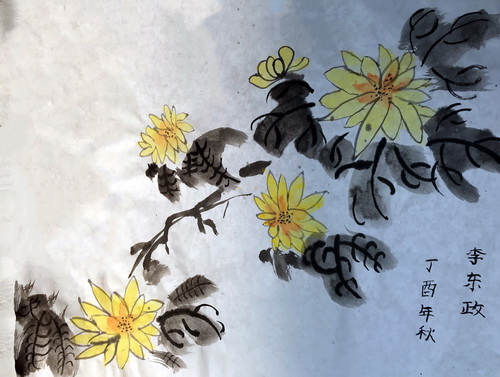 李东政
丁酉年秋